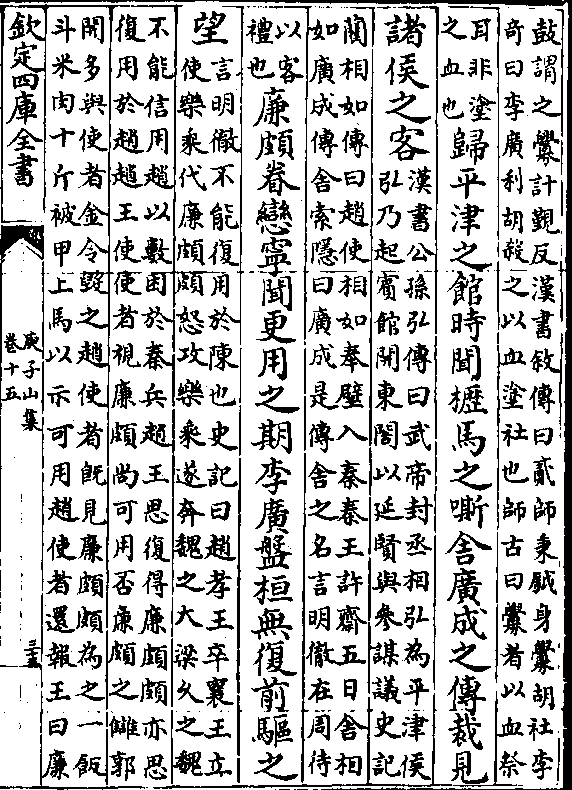 鼓謂之釁計覲反漢書敘傳曰貳師秉鉞身釁胡社李
奇曰李廣利胡殺之以血塗社也師古曰釁者以血祭
耳非塗
之血也
歸平津之館時聞櫪馬之嘶舍廣成之傳裁見
諸侯之客
漢書公孫弘傳曰武帝封丞相弘為平津侯
弘乃起賓館開東閣以延賢與參謀議史記
藺相如傳曰趙使相如奉璧入秦秦王許齋五日舍相
如廣成傳舍索隱曰廣成是傳舍之名言明徹在周待
以客
禮也
廉頗眷戀寧聞更用之期李廣盤桓無復前驅之
望
言明徹不能復用於陳也史記曰趙孝王卒襄王立
使樂乘代廉頗頗怒攻樂乘遂奔魏之大梁久之魏
不能信用趙以數困於秦兵趙王思復得廉頗頗亦思
復用於趙趙王使使者視廉頗尚可用否廉頗之讎郭
開多與使者金令毀之趙使者既見廉頗頗為之一飯
斗米肉十斤被甲上馬以示可用趙使者還報王曰廉
欽定四庫全書
庾子山集
卷十五
三十五